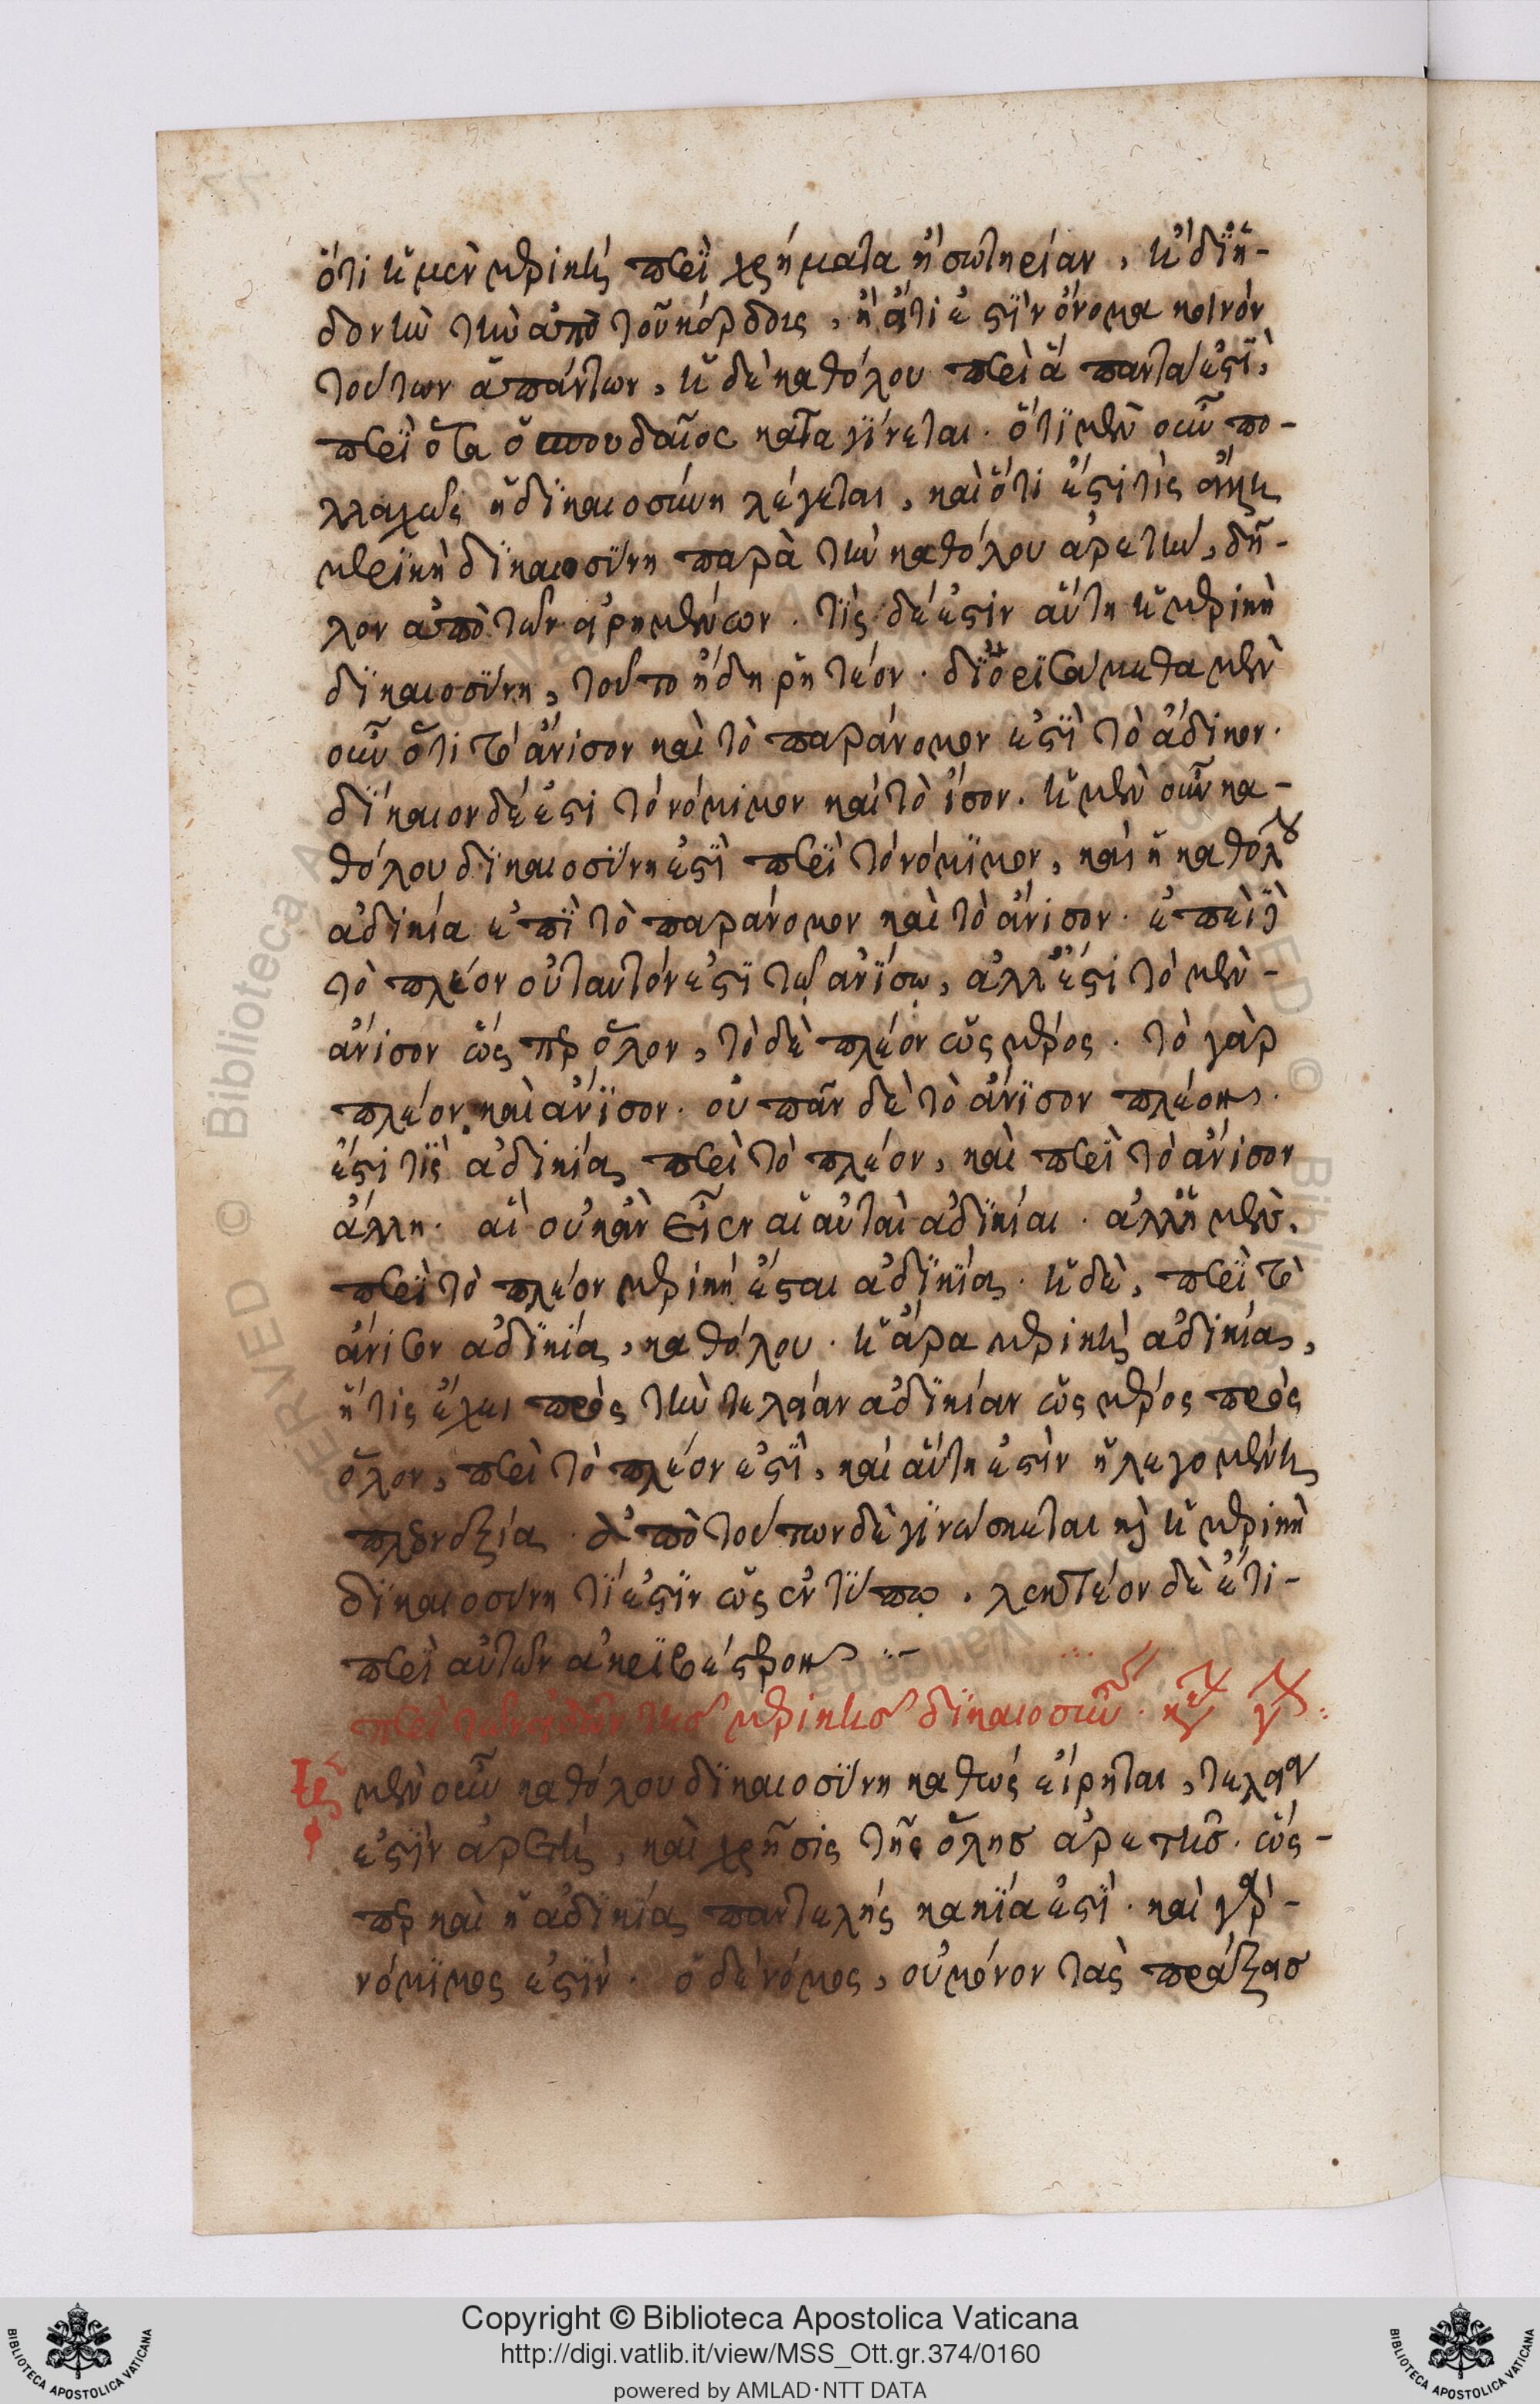 ὅτι ἡ μὲν μερικὴ περὶ χρήματα ἢ σωτηρίαν, ἢ δι' ἡ-
δονὴν τὴν ἀπὸ τοῦ κέρδους, ἢ εἴ τι ἐστὶν ὄνομα κοινὸν
τούτων ἁπάντων, ἡ δὲ καθόλου περὶ ἃ πάντα ἐστὶ,
περὶ ὅσα ὁ σπουδαῖος καταγίνεται. ὅτι μὲν οὖν πο-
λλαχῶς ἡ δικαιοσύνη λέγεται, καὶ ὅτι ἔστι τις ἄλλη
μερικὴ δικαιοσύνη παρὰ τὴν καθόλου ἀρετὴν, δῆ-
λον ἀπὸ τῶν εἰρημένων. τίς δέ ἐστιν αὕτη ἡ μερικὴ
δικαιοσύνη, τοῦτο ἤδη ῥητέον. διωρισάμεθα μὲν
οὖν ὅτι τὸ ἄνισον καὶ τὸ παράνομον ἐστὶ τὸ ἄδικον.
δίκαιον δέ ἐστι τὸ νόμιμον καὶ τὸ ἴσον. ἡ μὲν οὖν κα-
θόλου δικαιοσύνη ἐστὶ περὶ τὸ νόμιμον, καὶ ἡ καθόλου
ἀδικία ἐπὶ τὸ παράνομον καὶ τὸ ἄνισον. ἐπεὶ δὲ
τὸ πλέον οὐ ταυτόν ἐστι τῷ ἀνίσῳ, ἀλλ' ἔστι τὸ μὲν
ἄνισον ὥσπερ ὅλον, τὸ δὲ πλέον ὡς μέρος. τὸ γὰρ
πλέον καὶ ἄνισον. οὐ πᾶν δὲ τὸ ἄνισον πλέον.
ἔστι τις ἀδικία περὶ τὸ πλέον, καὶ περὶ τὸ ἄνισον
ἄλλη. οὐκ ἂν εἶεν αἱ αὐταὶ ἀδικίαι. ἀλλ' ἡ μὲν,
περὶ τὸ πλέον μερικὴ ἔσται ἀδικία. ἡ δὲ, περὶ τὸ
ἄνισον ἀδικία, καθόλου. ἡ ἄρα μερικὴ ἀδικία,
ἥτις ἔχει πρὸς τὴν τελείαν ἀδικίαν ὡς μέρος πρὸς
ὅλον, περὶ τὸ πλέον ἐστὶ, καὶ αὕτη ἐστὶν ἡ λεγομένη
πλεονεξία. ἀπὸ τούτων δὲ γινώσκεται καὶ ἡ μερικὴ
δικαιοσύνη τί ἐστιν ὡς ἐν τύπῳ. λεκτέον δὲ ἔτι
περὶ αὐτῶν ἀκριβέστερον :-
περὶ τῶν εἰδῶν τῆς μερικῆς δικαιοσύνης. κεφ γον :
Ἡ μὲν οὖν καθόλου δικαιοσύνη καθὼς εἴρηται, τελεία
ἐστὶν ἀρετὴ, καὶ χρῆσις τῆς ὅλης ἀρετῆς. ὥσ-
περ καὶ ἡ ἀδικία παντελής κακία ἐστὶ. καὶ γὰρ
νόμιμος ἐστὶν. ὁ δὲ νόμος, οὐ μόνον τὰς πράξεις
Copyright © Biblioteca Apostolica Vaticana
http://digi.vatlib.it/view/MSS_Ott.gr.374/0160
powered by AMLAD·NTT DATA